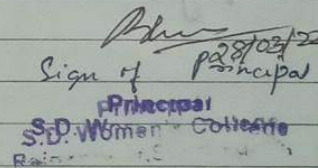 28/03/22
Sign of Principal
Principal
S.D. Women College